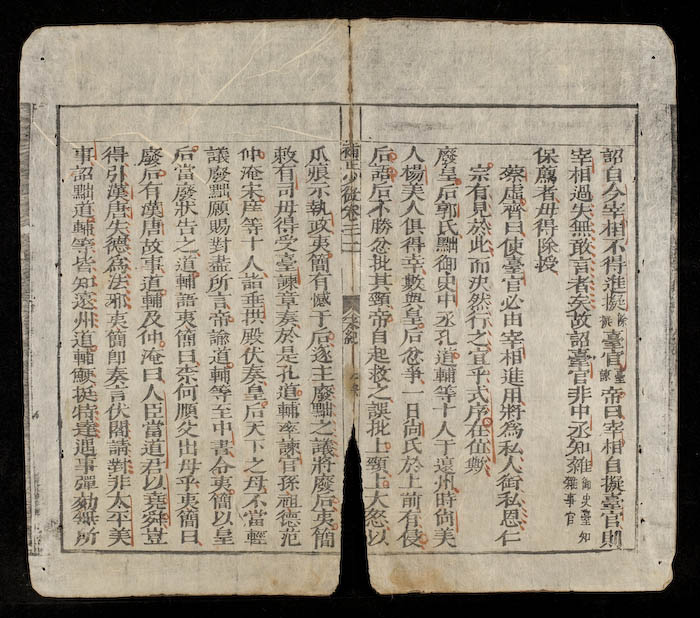 詔自今宰相不得進擬除擬臺官臺諫帝曰宰相自擬臺官則
宰相過失無敢言者矣故詔臺官非中丞知雜御史臺知雜事官
保薦者毋得除授
蔡虛齊曰使臺官必由宰相進用將為私人銜私恩仁
宗有見於此而決然行之宜乎式序在位歟
廢皇后郭氏黜御史中丞孔道輔等十人于遠州時尚美
人楊美人俱得幸數與皇后忿爭一日尚氏於上前有侵
后語后不勝忿批其頰帝自起救之誤批上頸上大怒以
補正少微卷三一 宋紀
爪痕示執政夷簡有憾于后遂主廢黜之議將廢后夷簡
敕有司毋得受臺諫章奏於是孔道輔率諫官孫祖德范
仲淹宋庠等十人詣垂拱殿伏奏皇后天下之母不當輕
議廢黜願賜對盡所言帝諭道輔等至中書令夷簡以皇
后當廢狀告之道輔語夷簡曰柰何順父出母乎夷簡曰
廢后有漢唐故事道輔及仲淹曰人臣當道君以堯舜豈
得引漢唐失德為法邪夷簡即奏言伏閣請對非太平美
事詔黜道輔等皆知遠州道輔鯁挺特達遇事彈劾無所